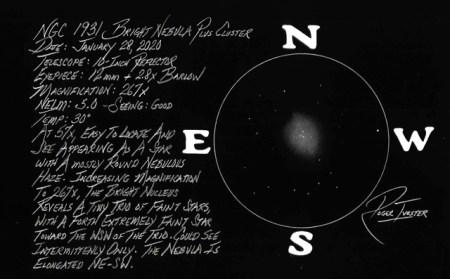 NGC 1931 Bright Nebula Plus Cluster
Date: January 28, 2020
Telescope: 10-Inch Reflector
Eyepiece: 12mm + 2.8x Barlow
Magnification: 267x
NELM: 5.0 - Seeing: Good
Temp: 30°
At 57x, Easy To Locate And
See Appearing As A Star
With A Mostly Round Nebulous
Haze. Increasing Magnification
To 267x, The Bright Nucleus
Reveals A Tiny Trio Of Faint Stars,
With A Forth Extremely Faint Star
Toward The WSW Of The Trio. Could See
Intermittenly Only. The Nebula Is
Elongated NE-SW.
N
E
W
S
Roger Ivester